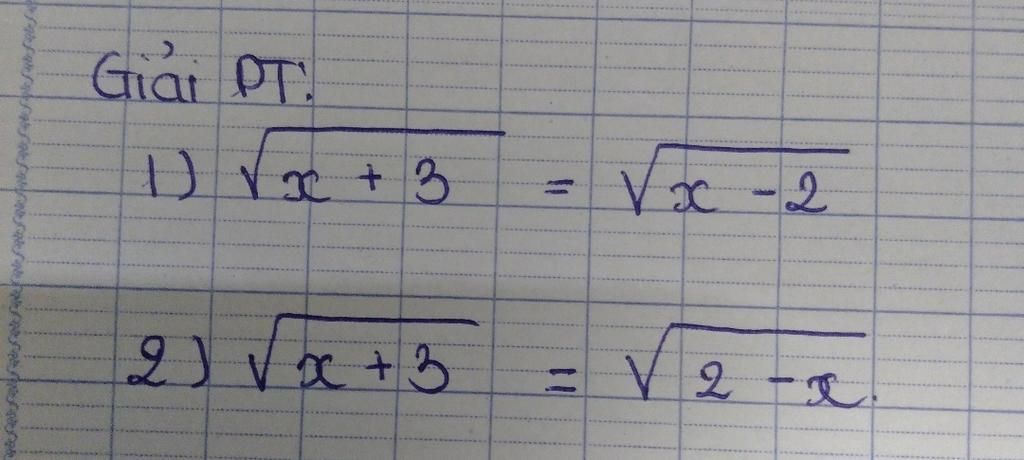 Giải PT:
1) √(x + 3) = √(x - 2)
2) √(x + 3) = √(2 - x).